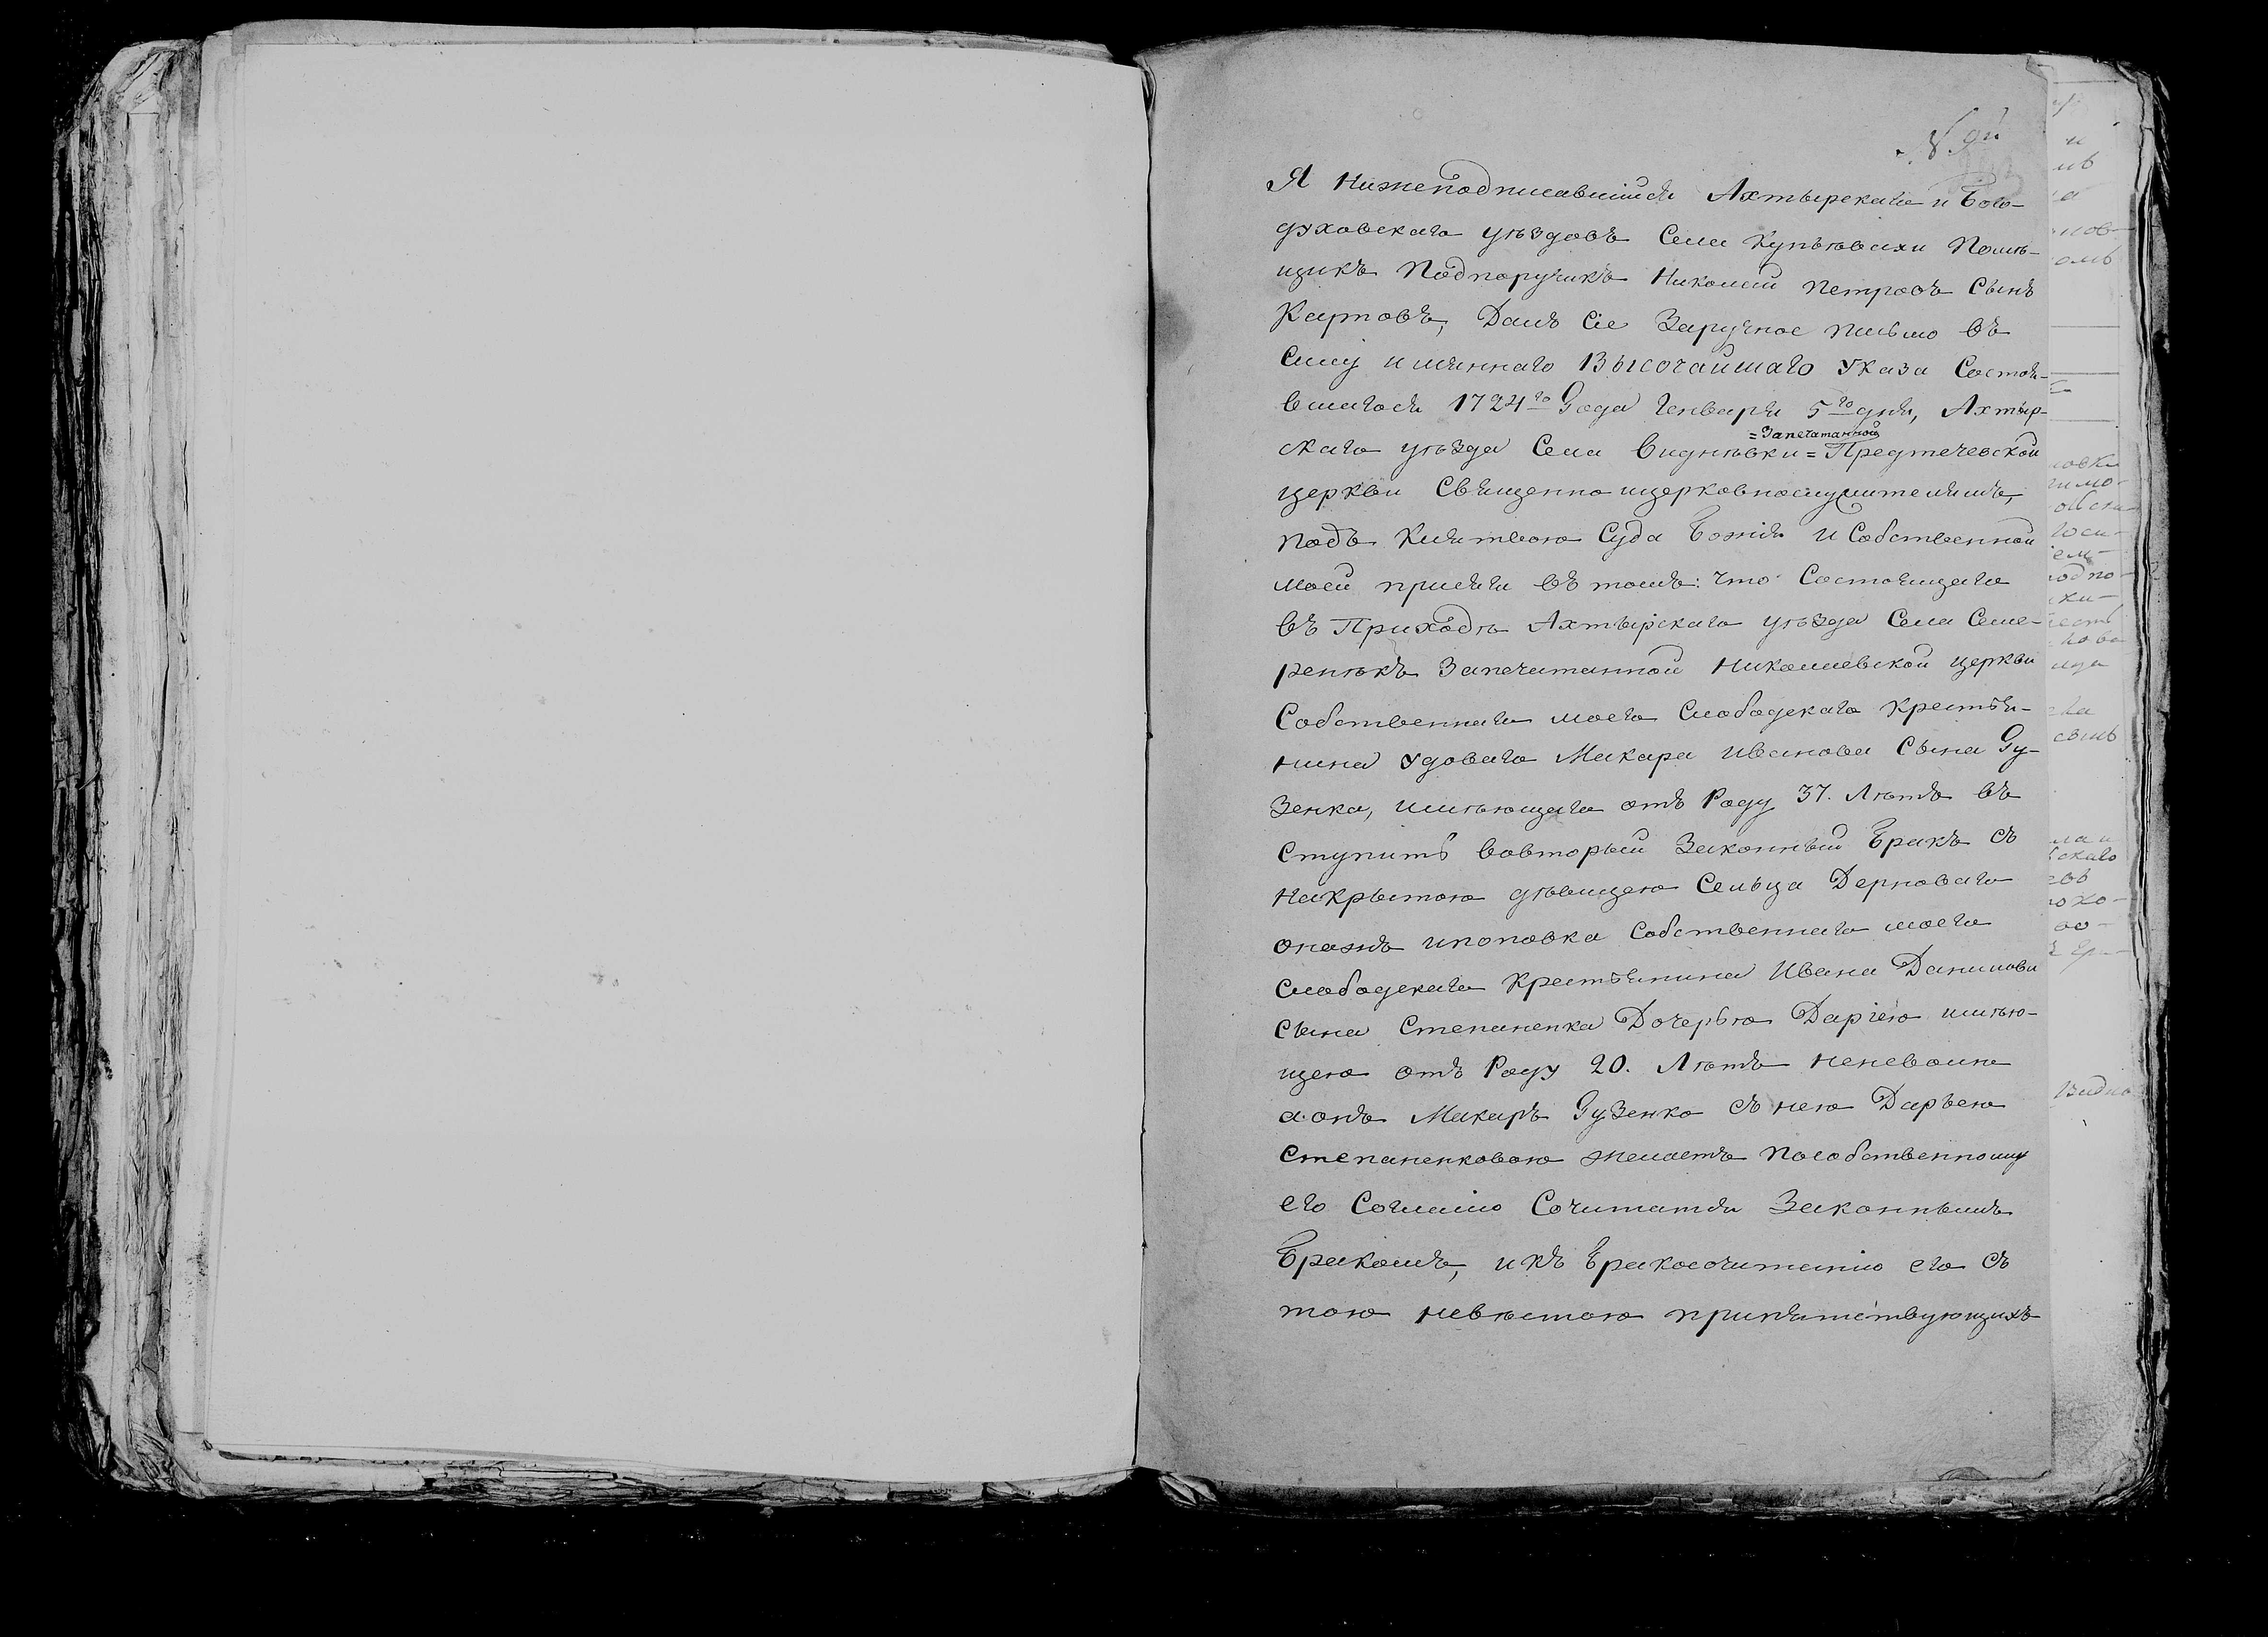 № 9й
Я Нижеподписавшійся Ахтырскаго и Бого-
духовскаго уѣздовъ Села Купѣвахи Помѣ-
щикъ Подпоручикъ Николай Петровъ Сынъ
Карповъ, Далъ Сіе Заручное Письмо въ
Силу имяннаго Высочайшаго Указа Состоя-
вшагося 1724го Года Генваря 5го дня, Ахтыр-
=Запечатанной
скаго уѣзда Села Виднѣвки = Предтечевской
церкви Священно ицерковнослужителямъ,
подъ Клятвою Суда Божія и Собственной
моей присяги въ томъ: что Состоящаго
въ Приходѣ Ахтырскаго уѣзда Села Семе-
ренѣкъ Запечатанной Николаевской церкви
Собственнаго моего Слободскаго Крестья-
нина Удоваго Макара Иванова Сына Гу-
Зенка, имѣющаго отъ Роду 37. Лѣтъ въ
Ступить вовторый Законный Бракъ съ
Накрытою дѣвицею Сельца Дерноваго
онажъ ипоповка Собственнаго моего
Слободскаго Крестьянина Ивана Данилова
Сына Степаненка Дочерью Даріею имѣю-
щею отъ Роду 20. Лѣтъ неневолно
а онъ Макаръ Гузенко съ нею Дарьею
Степаненковою желаетъ Пособственному
его Согласію Сочитатся Законнымъ
Бракомъ, икъ Бракосочитанію его съ
тою невѣстою припятствующихъ